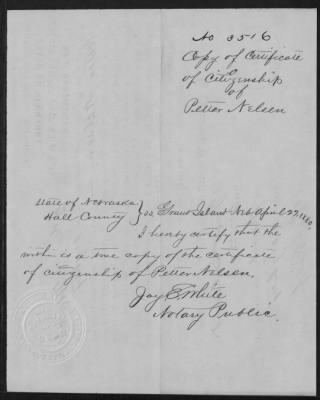 No 3516
Copy of Certificate
of Citizenship
of
Petter Nelsen
State of Nebraska
Hall County } ss. Grand Island Neb April 27, 1880.
I hereby certify that the
within is a true copy of the certificate
of citizenship of Petter Nelsen.
Jay E. White
Notary Public.